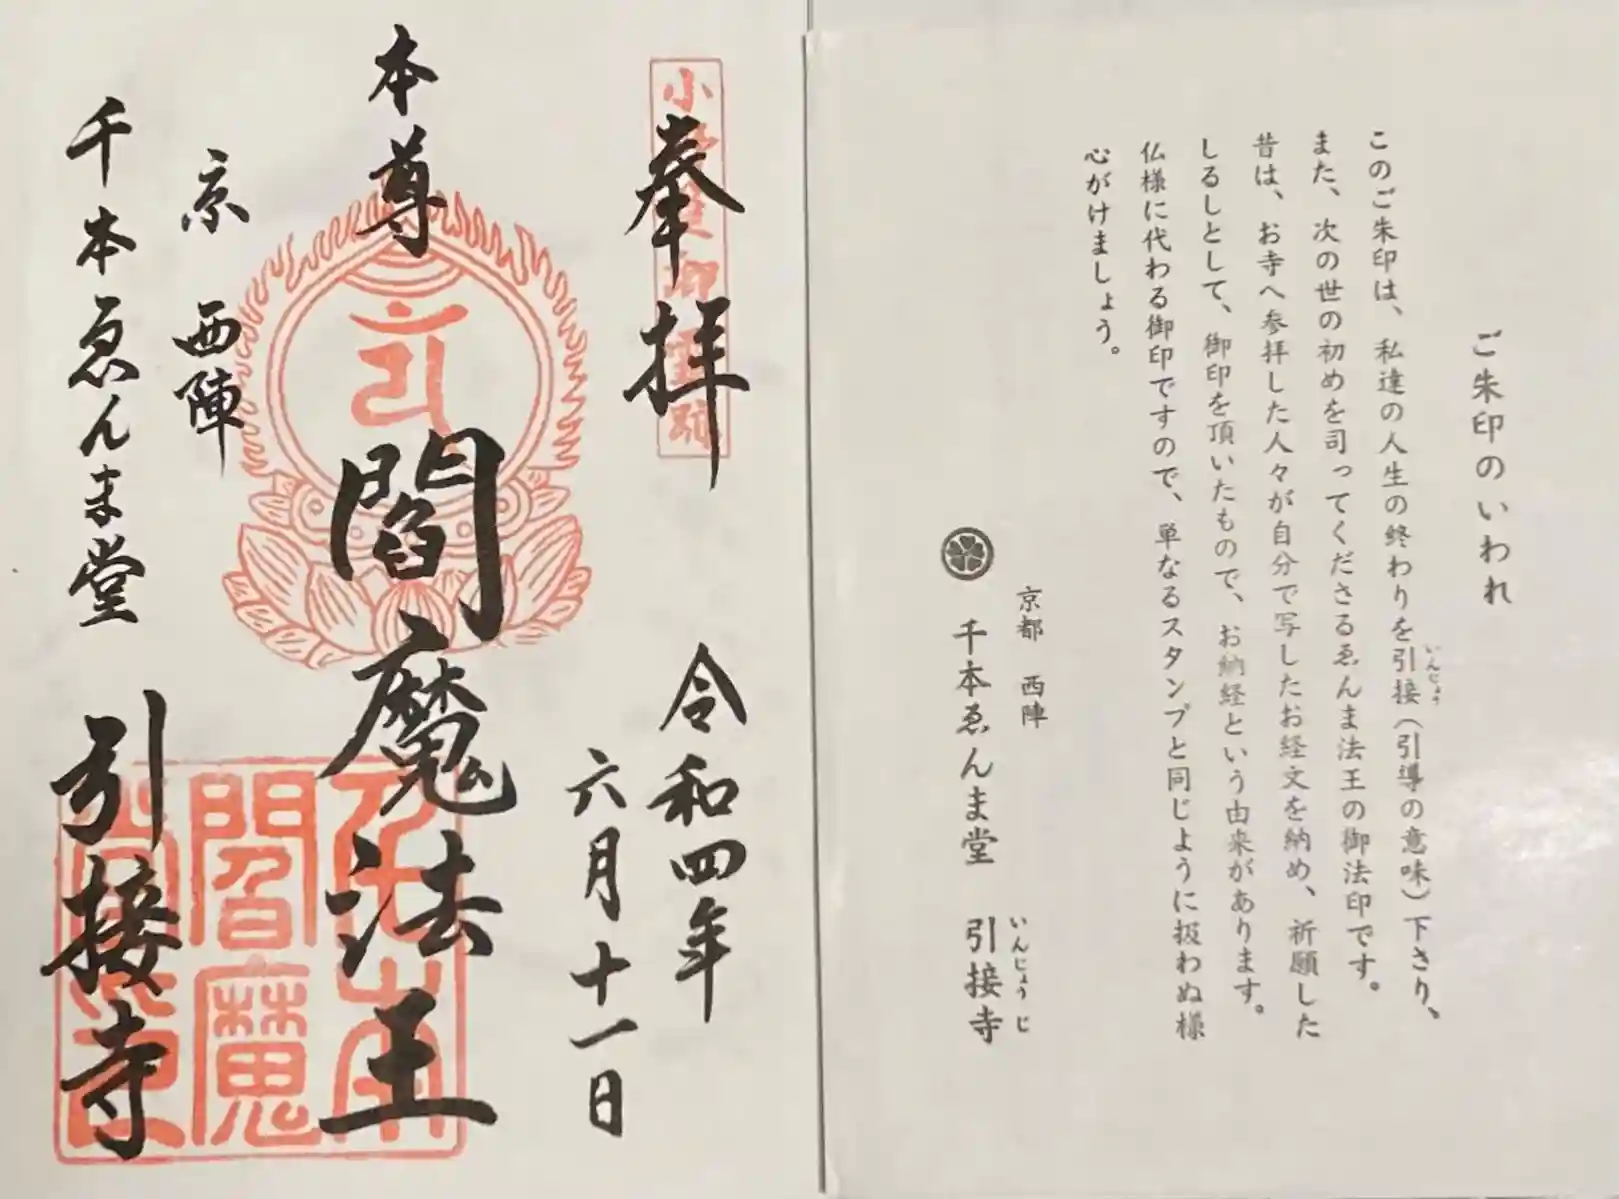 ご朱印のいわれ
このご朱印は、私達の人生の終わりを引接（引導の意味）下さり、
いんじょう
また、次の世の初めを司ってくださるゑんま法王の御法印です。
昔は、お寺へ参拝した人々が自分で写したお経文を納め、祈願した
しるしとして、御印を頂いたもので、お納経という由来があります。
仏様に代わる御印ですので、単なるスタンプと同じように扱わぬ様
心がけましょう。
京都　西陣
千本ゑんま堂　引接寺
いんじょうじ
奉拝
令和四年
六月十一日
本尊　閻魔法王
閻魔
京　西陣
千本ゑんま堂　引接寺